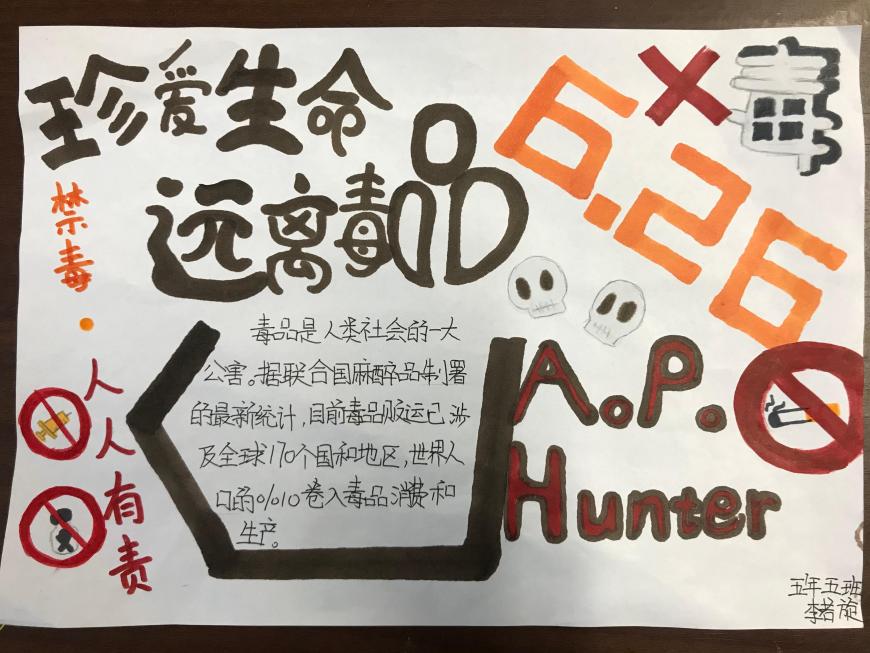 珍爱生命
远离毒品
6.26
毒
禁毒·人人有责
毒品是人类社会的一大
公害。据联合国麻醉品制署
的最新统计，目前毒品贩运已涉
及全球170个国和地区，世界人
口的%10卷入毒品消费和
生产。
A.P.
Hunter
五年五班